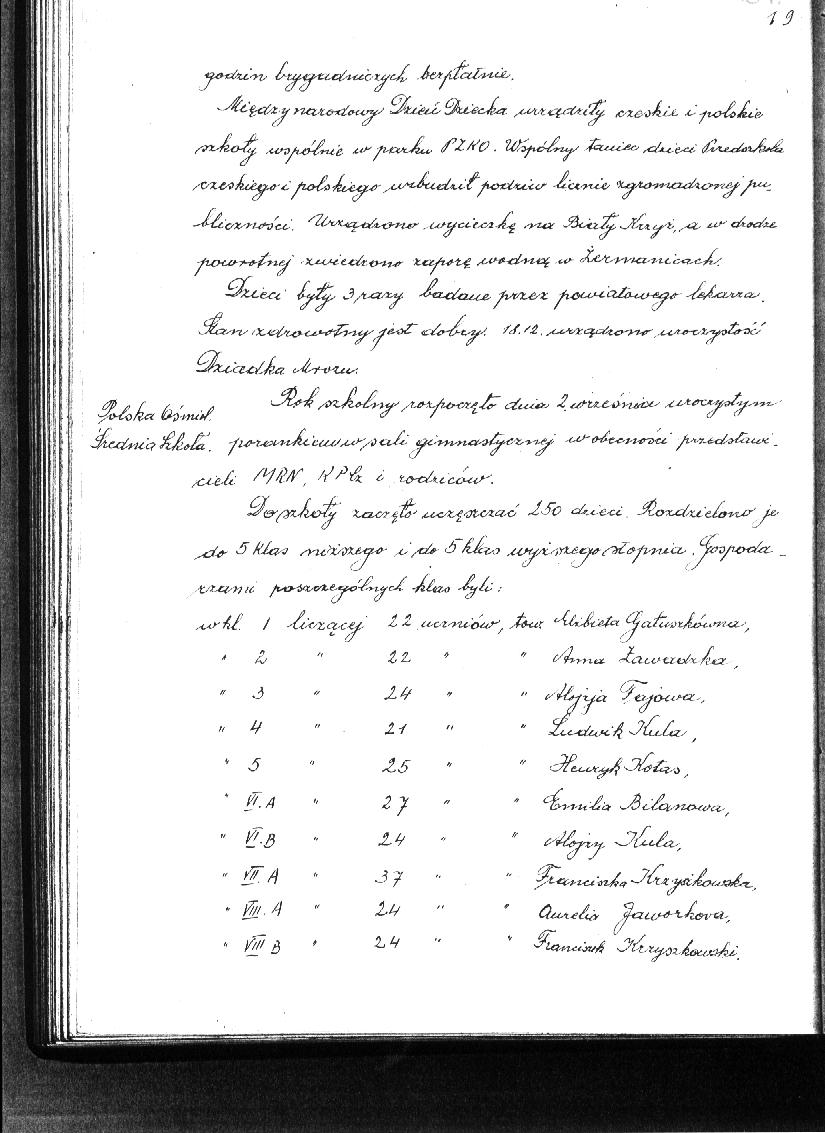 19
godzin brygadniczych bezpłatnie.
Międzynarodowy Dzień Dziecka urządziły czeskie i polskie
szkoły wspólnie w parku PZKO. Wspólny taniec dzieci Przedszkola
czeskiego i polskiego wzbudził podziw licznie zgromadzonej pu-
bliczności. Urządzono wycieczkę na Biały Krzyż, a w drodze
powrotnej zwiedzono zaporę wodną w Żermanicach.
Dzieci były 3 razy badane przez powiatowego lekarza.
Stan zdrowotny jest dobry. 18.12. urządzono uroczystość
Dziadka Mrozu.
Polska Ośmiol.
Średnia Szkoła.
Rok szkolny rozpoczęto dnia 2. września uroczystym
porankiem w sali gimnastycznej w obecności przedstawi-
cieli MRN, KPCz i rodziców.
Do szkoły zaczęło uczęszczać 250 dzieci. Rozdzielono je
do 5 klas niższego i do 5 klas wyższego stopnia. Gospoda-
rzami poszczególnych klas byli:
w kl. 1 liczącej 22 uczniów, tow. Elżbieta Gałuszkówna,
" 2 " 22 " " Anna Zawadzka,
" 3 " 24 " " Alojzja Fajowa,
" 4 " 21 " " Ludwik Kula,
" 5 " 25 " " Henryk Kotas,
" VI.A " 27 " " Emilia Bilanowa,
" VI.B " 24 " " Alojzy Kula,
" VII.A " 37 " " Franciszka Krzyżkowska,
" VIII.A " 24 " " Aurelia Jaworkova,
" VIII B " 24 " " Franciszek Krzyszkowski.